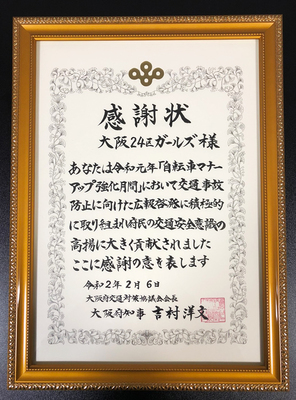 感謝状
大阪24区ガールズ様
あなたは令和元年「自転車マナー
アップ強化月間」において交通事故
防止に向けた広報啓発に積極的
に取り組まれ府民の交通安全意識の
高揚に大きく貢献されました
ここに感謝の意を表します
令和2年2月6日
大阪府交通対策協議会会長
大阪府知事 吉村洋文